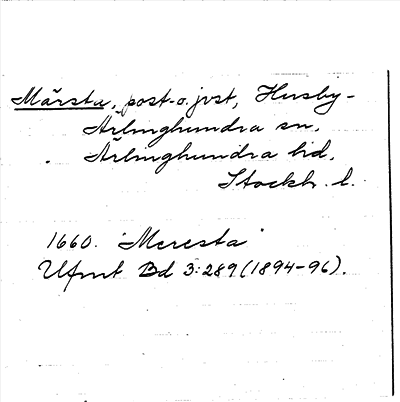 Märsta, post- o. jvst, Husby-
Ärlinghundra sn,
Ärlinghundra hd,
Stockh. l.
1660. "Meresta"
Ufmt Bd 3:289 (1894-96).